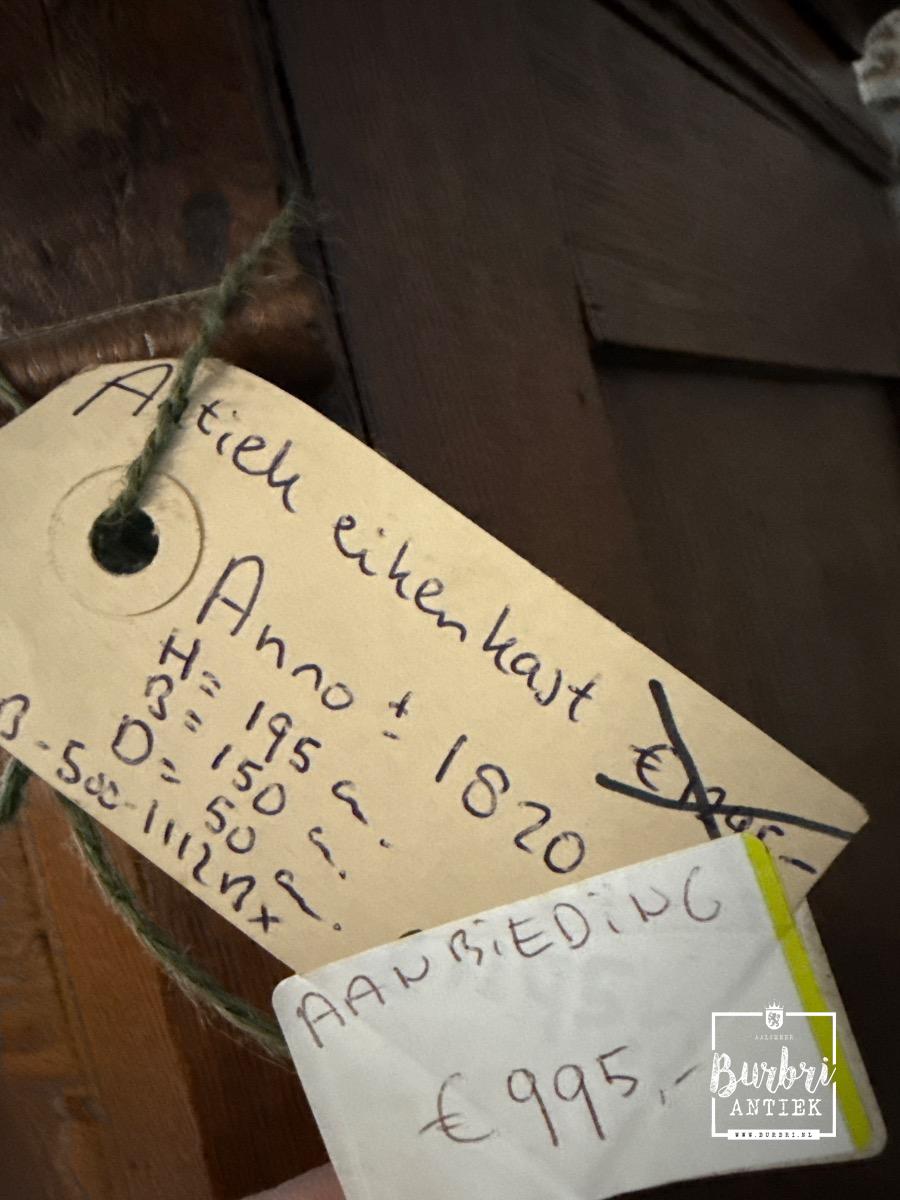 Antiek eikenkast
Anno ± 1820
H= 195 cm.
B= 150 cm.
D= 50 cm.
AANBIEDING
€ 995,-
AALSMEER
Burbri
ANTIEK
WWW.BURBRI.NL